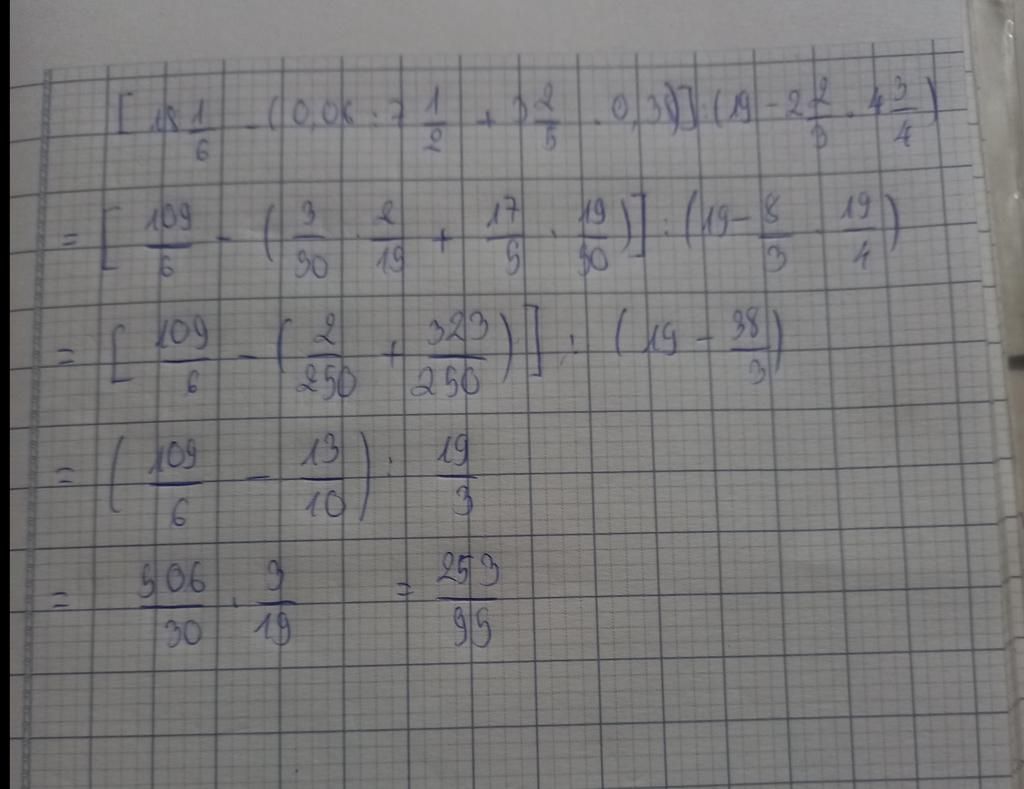 [18 1/6 - (0,06 : 7 1/2 + 3 2/5 . 0,38)] : (19 - 2 2/3 . 4 3/4)
= [109/6 - (3/50 . 2/15 + 17/5 . 19/50)] : (19 - 8/3 . 19/4)
= [109/6 - (2/250 + 323/250)] : (19 - 38/3)
= (109/6 - 13/10) : 19/3
= 506/30 . 3/19 = 253/95